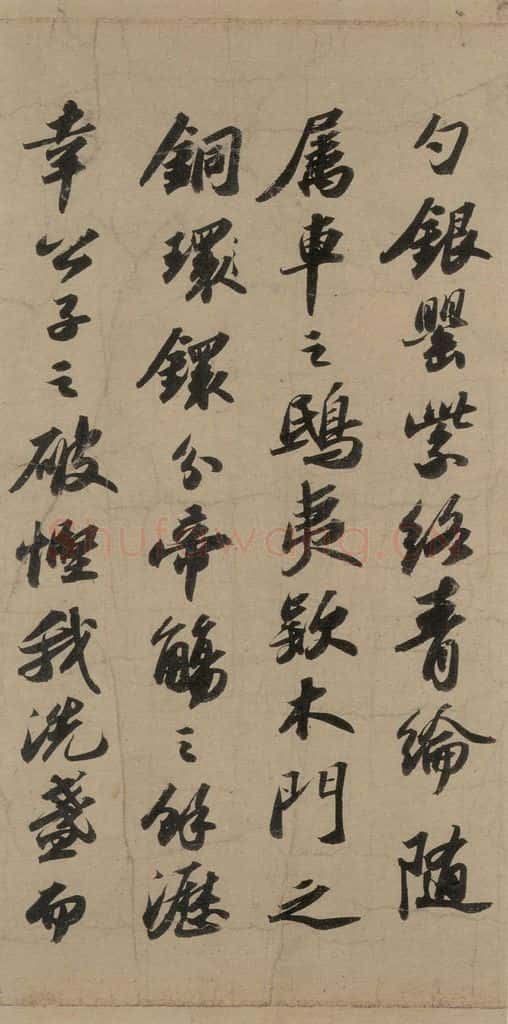 勺銀罌紫絡青綸隨
屬車之鴟夷欵木門之
銅環鐶分帝觴之餘瀝
幸公子之破慳我洗盞而